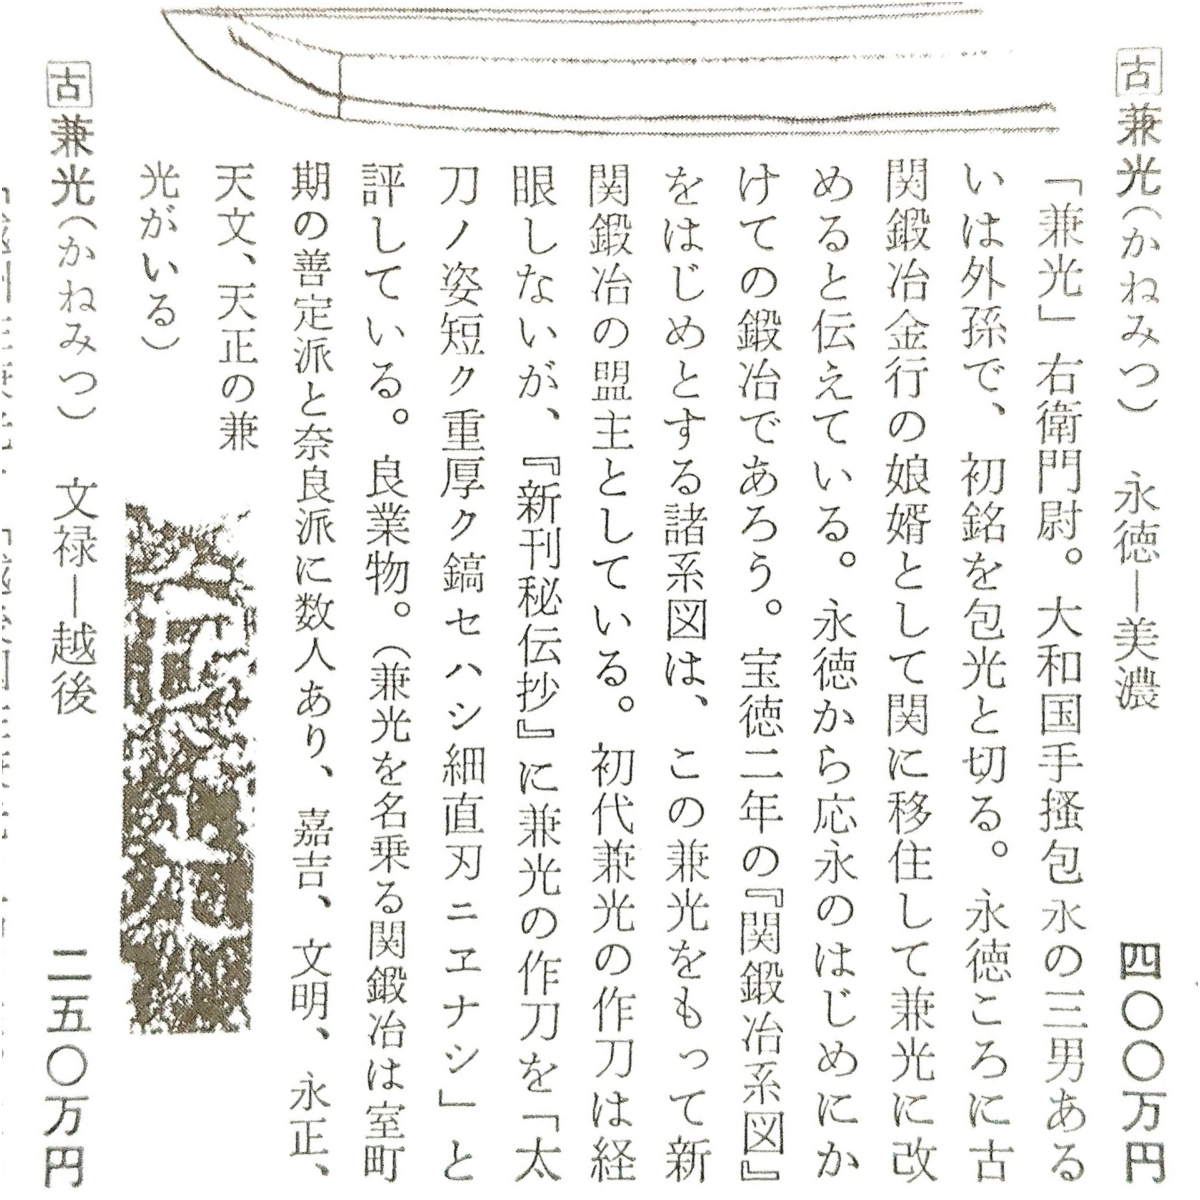 古 兼光（かねみつ） 永徳―美濃 四〇〇万円
「兼光」右衛門尉。大和国手搔包永の三男ある
いは外孫で、初銘を包光と切る。永徳ころに古
関鍛冶金行の娘婿として関に移住して兼光に改
めると伝えている。永徳から応永のはじめにか
けての鍛冶であろう。宝徳二年の『関鍛冶系図』
をはじめとする諸系図は、この兼光をもって新
関鍛冶の盟主としている。初代兼光の作刀は経
眼しないが、『新刊秘伝抄』に兼光の作刀を「太
刀ノ姿短ク重厚ク鎬セハシ細直刃ニヱナシ」と
評している。良業物。（兼光を名乗る関鍛冶は室町
期の善定派と奈良派に数人あり、嘉吉、文明、永正、
天文、天正の兼
光がいる）
古 兼光（かねみつ） 文禄―越後 二五〇万円